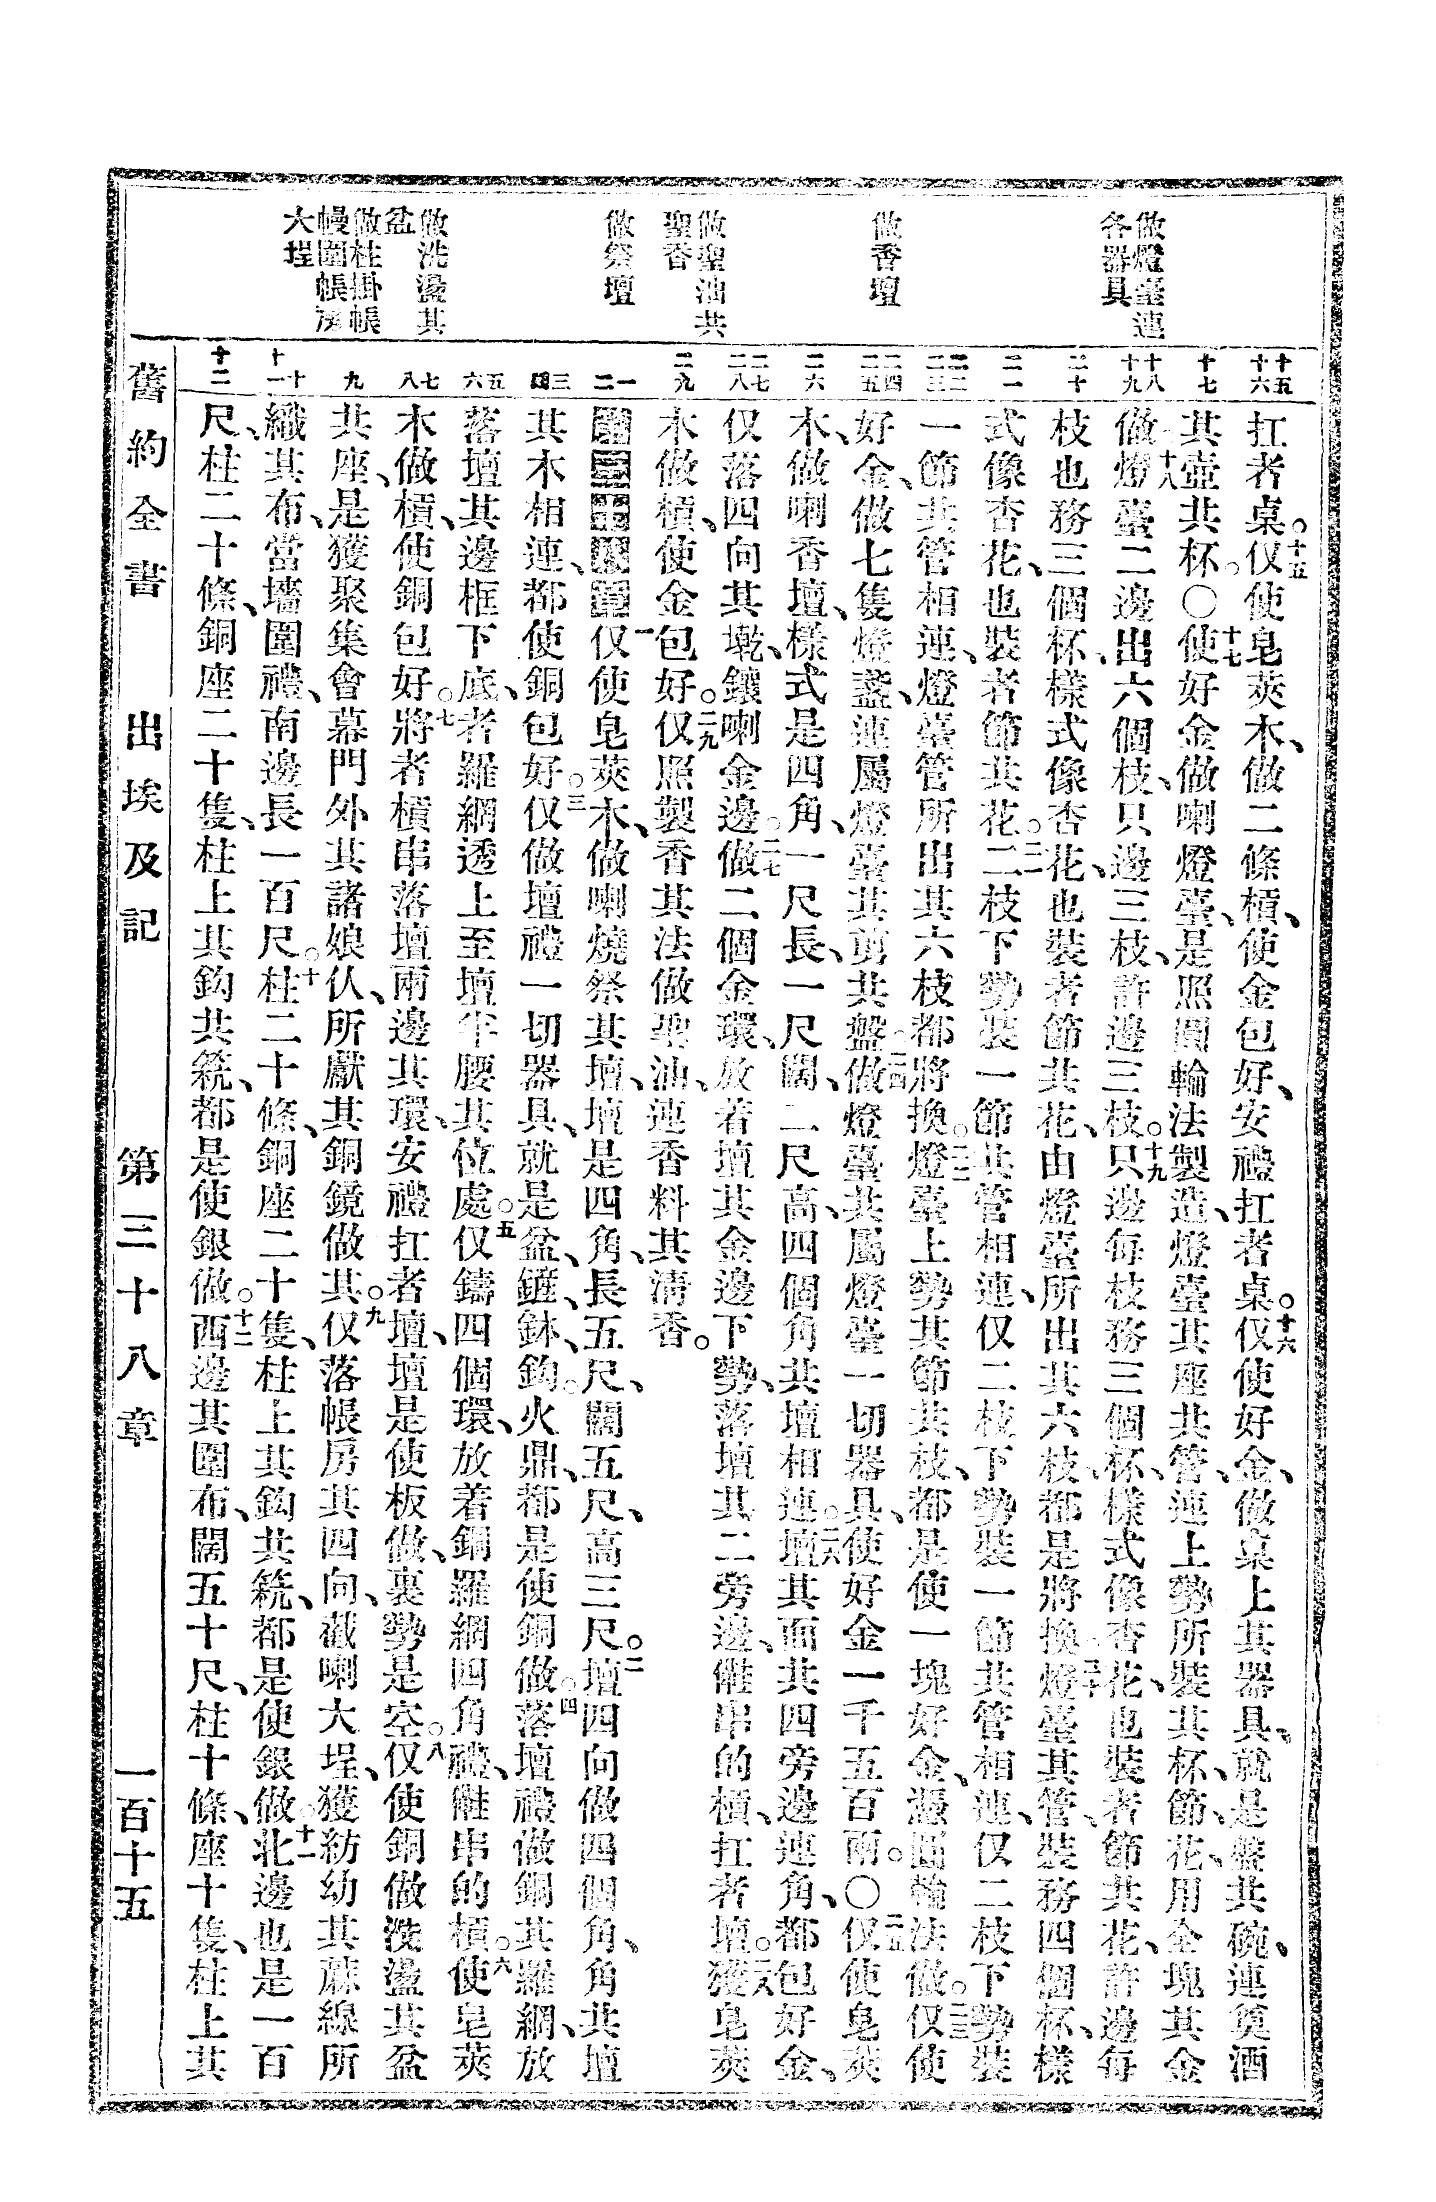 做燈臺連
各器具
做香壇
做聖油共
聖香
做祭壇
做洗盪其
盆
做柱掛帳
幔圍帳房
大埕
十五
十六
扛者桌。十五仅使皂莢木、做二條槓、使金包好、安禮扛者桌。十六仅使好金、做桌上其器具、就是盤共碗、連奠酒
十七
其壺共杯。〇十七使好金做喇燈臺、是照圓輪法製造、燈臺其座共管、連上勢所裝其杯、節、花、用仝塊其金
十八
十九
做。十八燈臺二邊出六個枝、只邊三枝、許邊三枝。十九只邊每枝務三個杯、樣式像杏花、也裝者節共花、許邊每
二十
枝也務三個杯、樣式像杏花、也裝者節共花、由燈臺所出其六枝、都是將換。二十燈臺其管、裝務四個杯、樣
二一
式像杏花、也裝者節共花。二一二枝下勢裝一節共管相連、仅二枝下勢裝一節共管相連、仅二枝下勢裝
二二
二三
一節共管相連、燈臺管所出其六枝都將換。二二燈臺上勢其節共枝、都是使一塊好金、憑圓輪法做。二三仅使
二四
二五
好金、做七隻燈盞、連屬燈臺其剪共盤。二四做燈臺共屬燈臺一切器具、使好金一千五百兩。〇二五仅使皂莢
二六
木、做喇香壇、樣式是四角、一尺長、一尺闊、二尺高、四個角共壇相連。二六壇其面共四旁邊連角、都包好金、
二七
二八
仅落四向其墘、鑲喇金邊。二七做二個金環、放着壇其金邊下勢、落壇其二旁邊、㑽串的槓、扛者壇。二八獲皂莢
二九
木做槓、使金包好。二九仅照製香其法做聖油、連香料其淸香。
一
二
第三十八章一仅使皂莢木、做喇燒祭其壇、壇是四角、長五尺、闊五尺、高三尺。二壇四向做四個角、角共壇
三
四
其木相連、都使銅包好。三仅做壇禮一切器具、就是盆、鏟、鉢、鈎、火鼎、都是使銅做。四落壇禮、做銅其羅網、放
五
六
落壇其邊框下底、者羅網透上至壇半腰其位處。五仅鑄四個環、放着銅羅網四角禮、㑽串的槓。六使皂莢
七
八
木做槓、使銅包好。七將者槓串落壇兩邊其環、安禮扛者壇、壇是使板做、裏勢是空。八仅使銅做洗盪其盆
九
共座、是獲聚集會幕門外其諸娘仈、所獻其銅鏡做其。九仅落帳房其四向、截喇大埕、獲紡幼其蔴線所
十
十一
織其布、當墻圍禮、南邊長一百尺。十柱二十條、銅座二十隻、柱上其鈎共筅、都是使銀做。十一北邊也是一百
十二
尺、柱二十條、銅座二十隻、柱上其鈎共筅、都是使銀做。十二西邊其圍布、闊五十尺、柱十條、座十隻、柱上其
舊約全書 出埃及記 第三十八章 一百十五